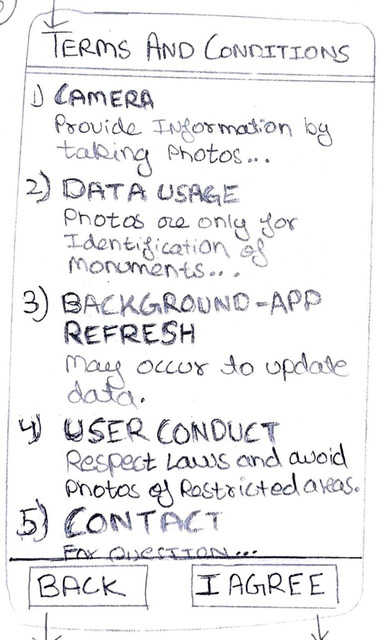 TERMS AND CONDITIONS
1) CAMERA
Provide Information by
taking Photos...
2) DATA USAGE
Photos are only for
Identification of
Monuments...
3) BACKGROUND-APP
REFRESH
May occur to update
data.
4) USER CONDUCT
Respect Laws and avoid
Photos of Restricted areas.
5) CONTACT
For QUESTION...
BACK
I AGREE